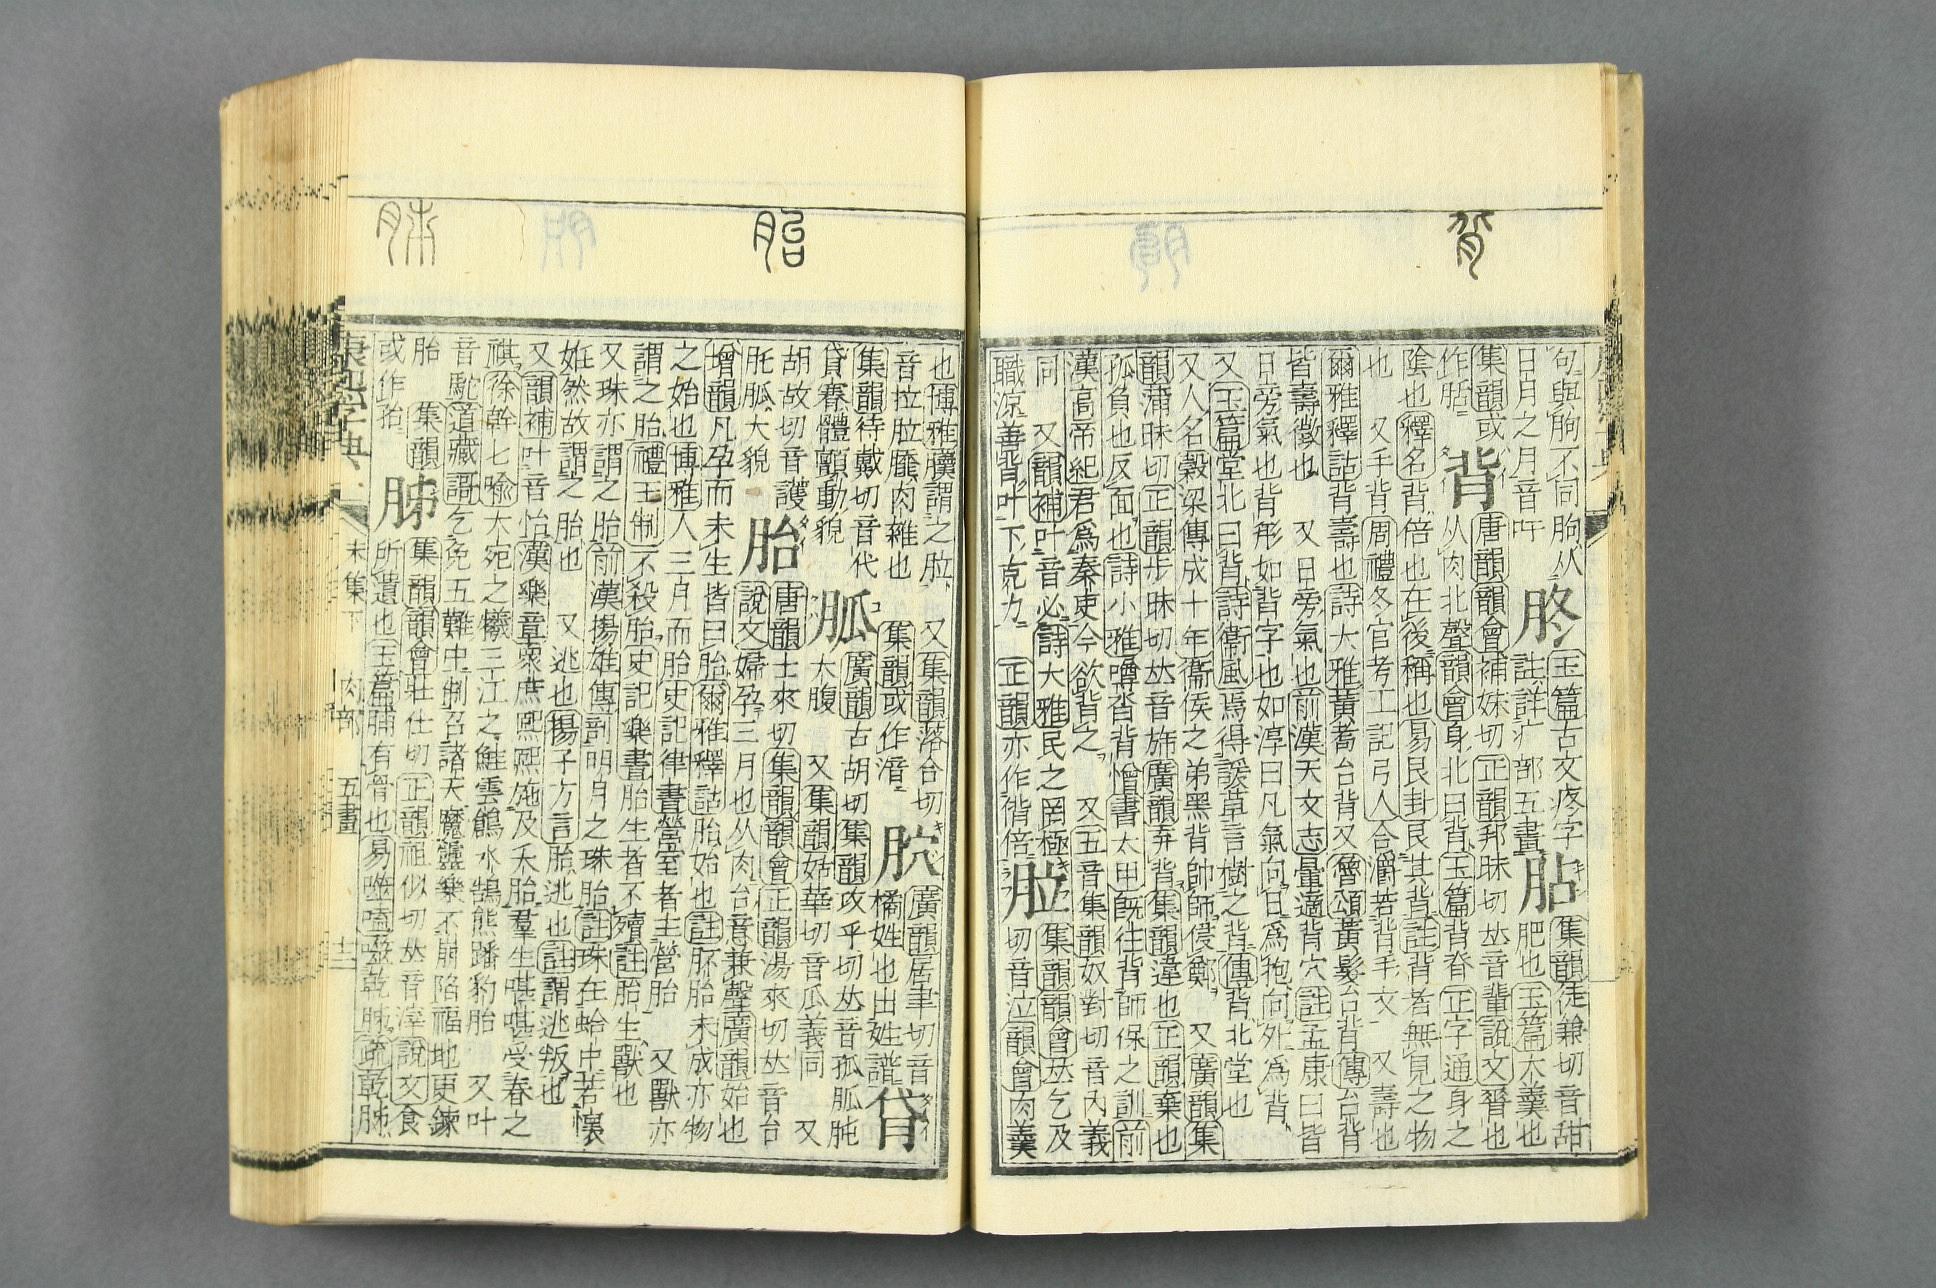 背
句與朐不同朐从 玉篇古文疼字 集韻徒兼切音甜
日月之月音吁 胗 註詳疒部五畫 胋 肥也玉篇大羹也
集韻或 唐韻韻會補妹切正韻邦昧切𠀤音輩說文𦟝也
作 背 从肉北聲韻會身北曰背玉篇背脊正字通身之
陰也釋名背倍也在後稱也易艮卦艮其背註背者無見之物
也 又手背周禮冬官考工記弓人合灂若背手文 又壽也
爾雅釋詁背壽也詩大雅黃耇台背又魯頌黃髮台背傳台背
皆壽徵也 又日旁氣也前漢天文志暈適背穴註孟康曰皆
日旁氣也背形如背字也如淳曰凡氣向日爲抱向外爲背
又玉篇堂北曰背詩衞風焉得諼草言樹之背傳背北堂也
又人名穀梁傳成十年衞侯之弟黑背帥師侵鄭 又廣韻集
韻蒲昧切正韻步昧切𠀤音旆廣韻弃背集韻違也正韻棄也
孤負也反面也詩小雅噂沓背憎書太甲旣往背師保之訓前
漢高帝紀君爲秦吏今欲背之 又五音集韻奴對切音內義
同 又韻補叶音必詩大雅民之罔極 集韻韻會𠀤乞及
職涼善背叶下克力 正韻亦作偝倍 𦙲 切音泣韻會肉羹
胎
胏
也博雅謂之𦙲 又集韻落合切 廣韻居聿切音
音拉𦙲肉雜也 集韻或作湆 䏣 橘姓也出姓譜
集韻待戴切音代 廣韻古胡切集韻攻乎切𠀤音孤胍肫
貸䏭體顫動貌 胍 大腹 又集韻姑華切音瓜義同 又
胡故切音護 唐韻土來切集韻韻會正韻湯來切𠀤音台
胍大貌 胎 說文婦孕三月也从肉台意兼聲廣韻始也
增韻凡孕而未生皆曰胎爾雅釋詁胎始也註胚胎未成亦物
之始也博雅人三月而胎史記律書營室者主營胎 又獸亦
謂之胎禮王制不殺胎史記樂書胎生者不殰註胎生獸也
又珠亦謂之胎前漢揚雄傳剖明月之珠胎註珠在蛤中若懷
妊然故謂之胎也 又逃也揚子方言胎逃也註謂逃叛也
又韻補叶音怡漢樂章衆庶熙熙施及夭胎羣生啿啿受春之
祺徐幹七喻大宛之犧三江之鮭雲鶬水鵠熊蹯豹胎 又叶
音駝道藏謌乞免五難中制召諸天魔靈樂不崩陷福地更鍊
胎 集韻 集韻韻會壯仕切正韻祖似切𠀤音滓說文食
或作孡 胏 所遺也玉篇脯有骨也易噬嗑噬乾胏疏乾胏
康熙字典 未集下 肉部 五畫 十二